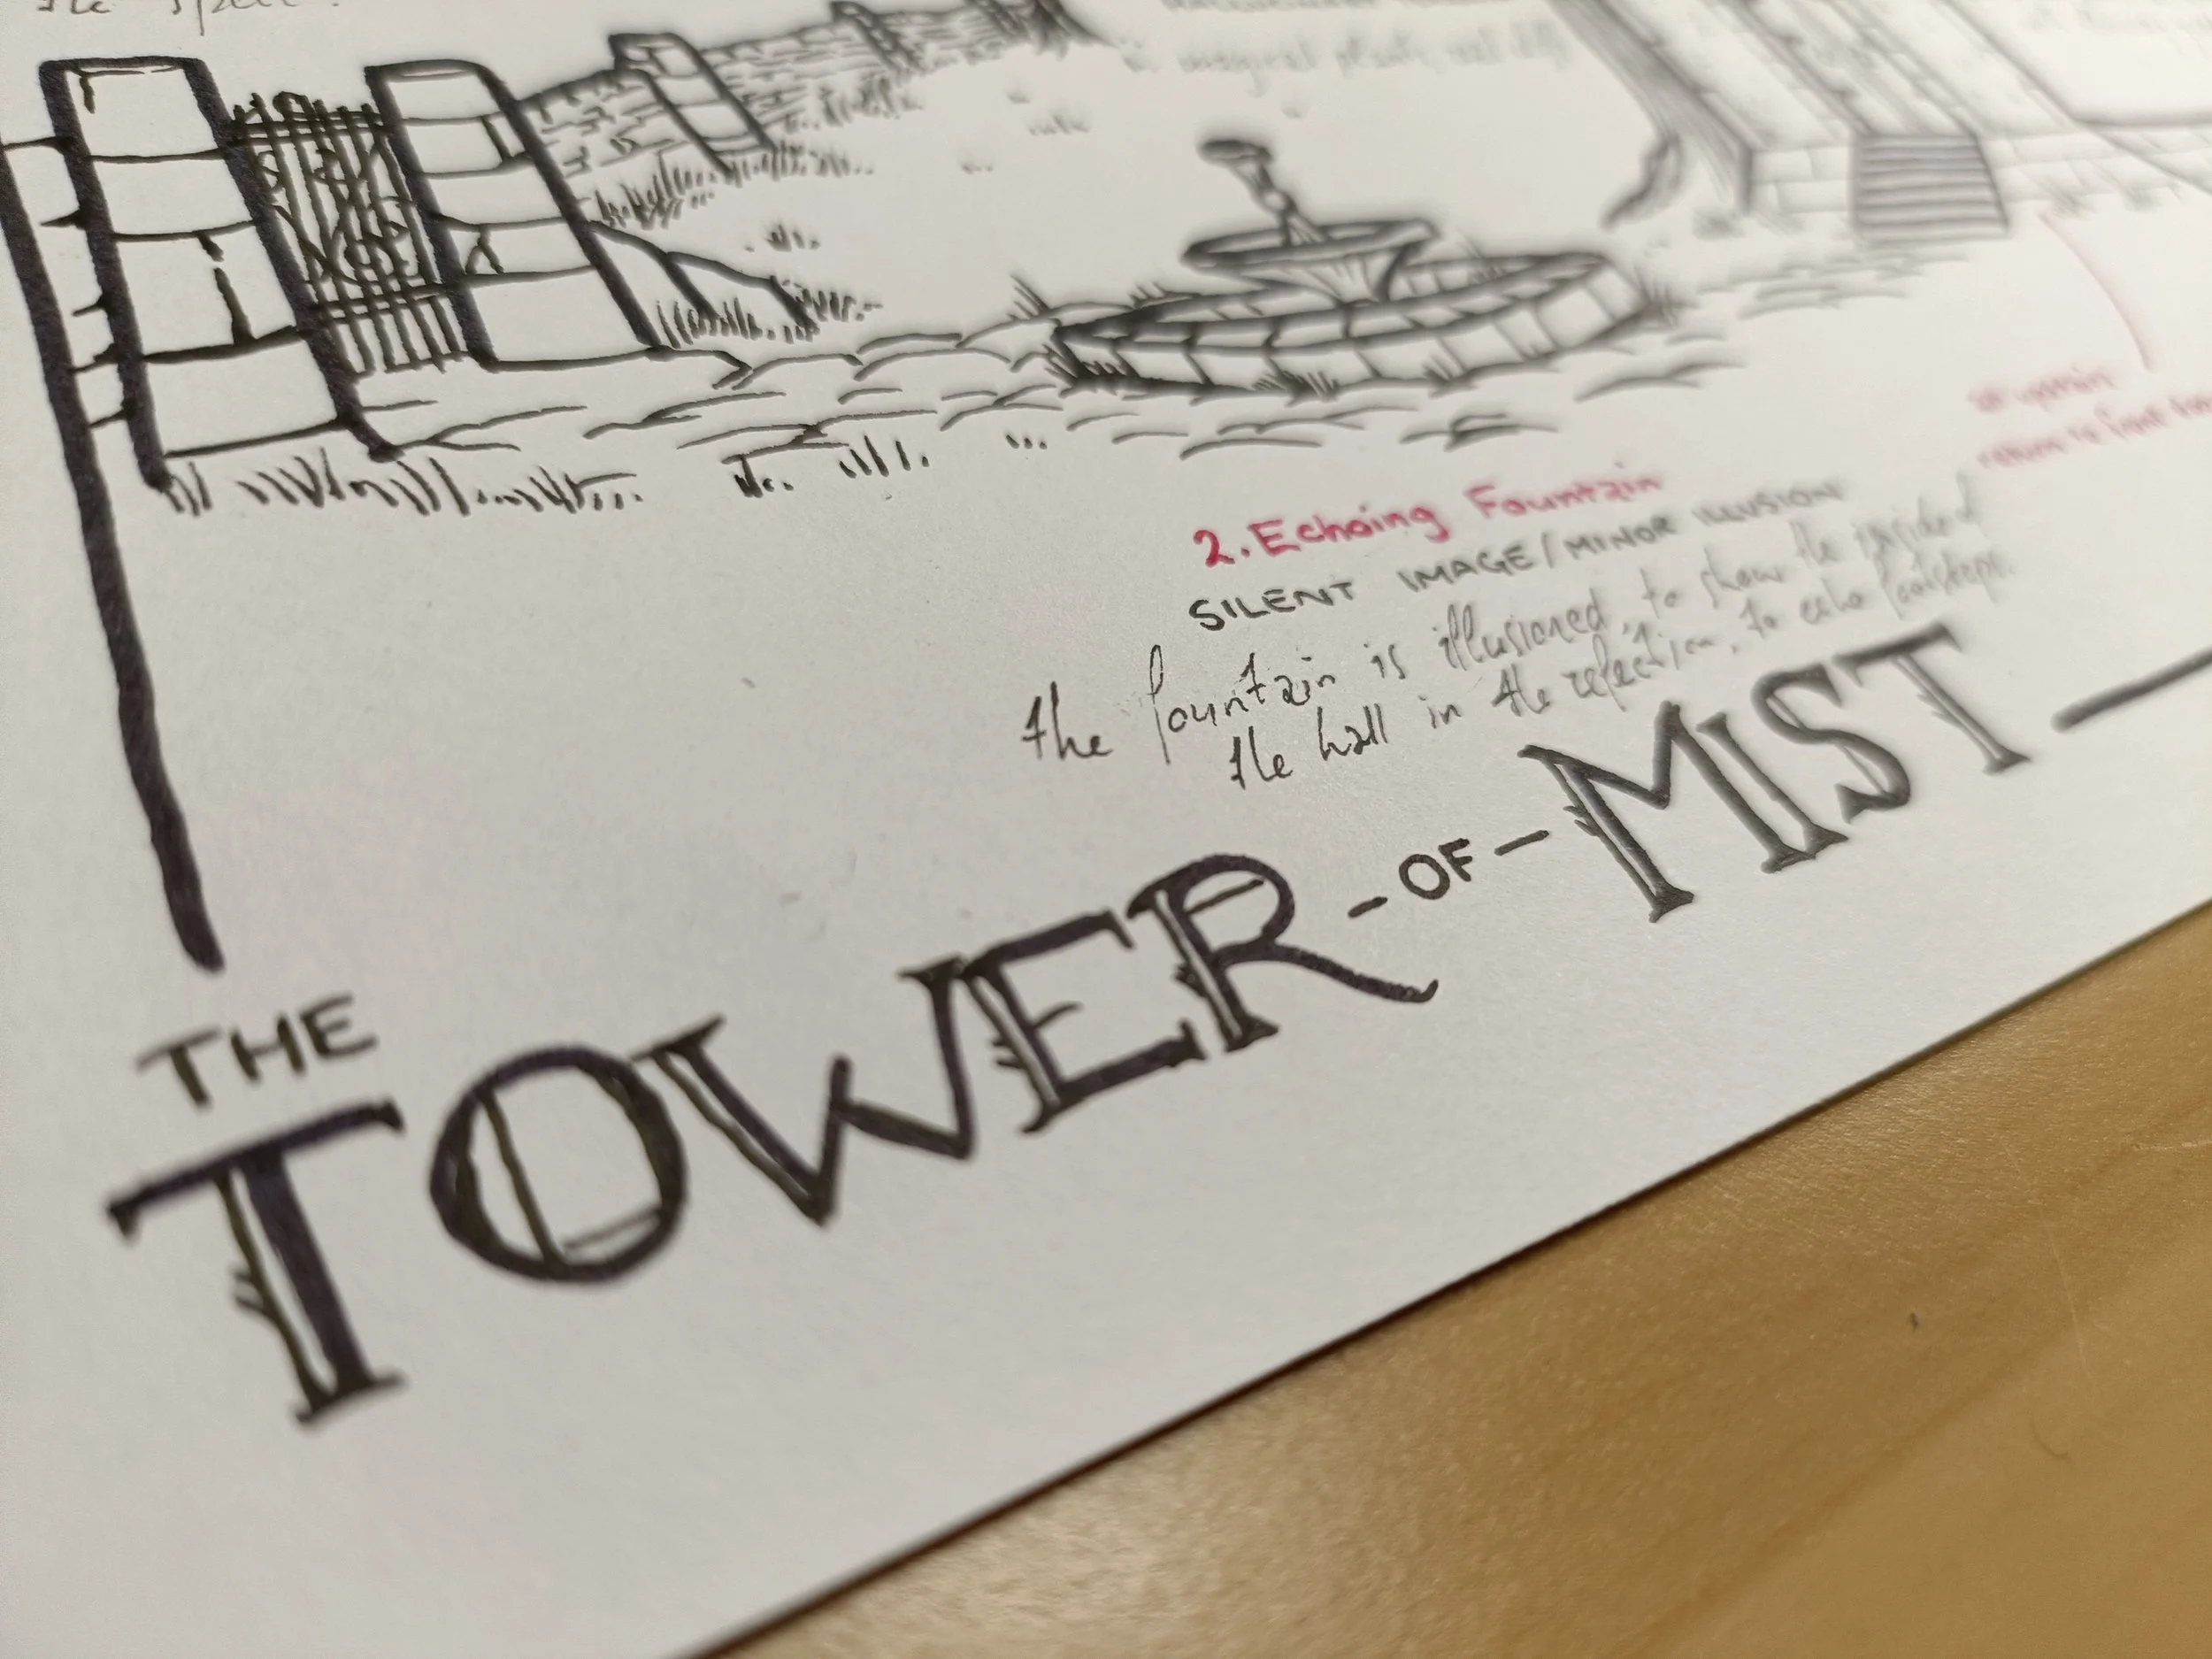 the spell.
2. Echoing Fountain
SILENT IMAGE/MINOR ILLUSION
the fountain is illusioned, to show the inside of
the hall in the reflection, to echo footsteps.
return to front
THE
TOWER - OF - MIST